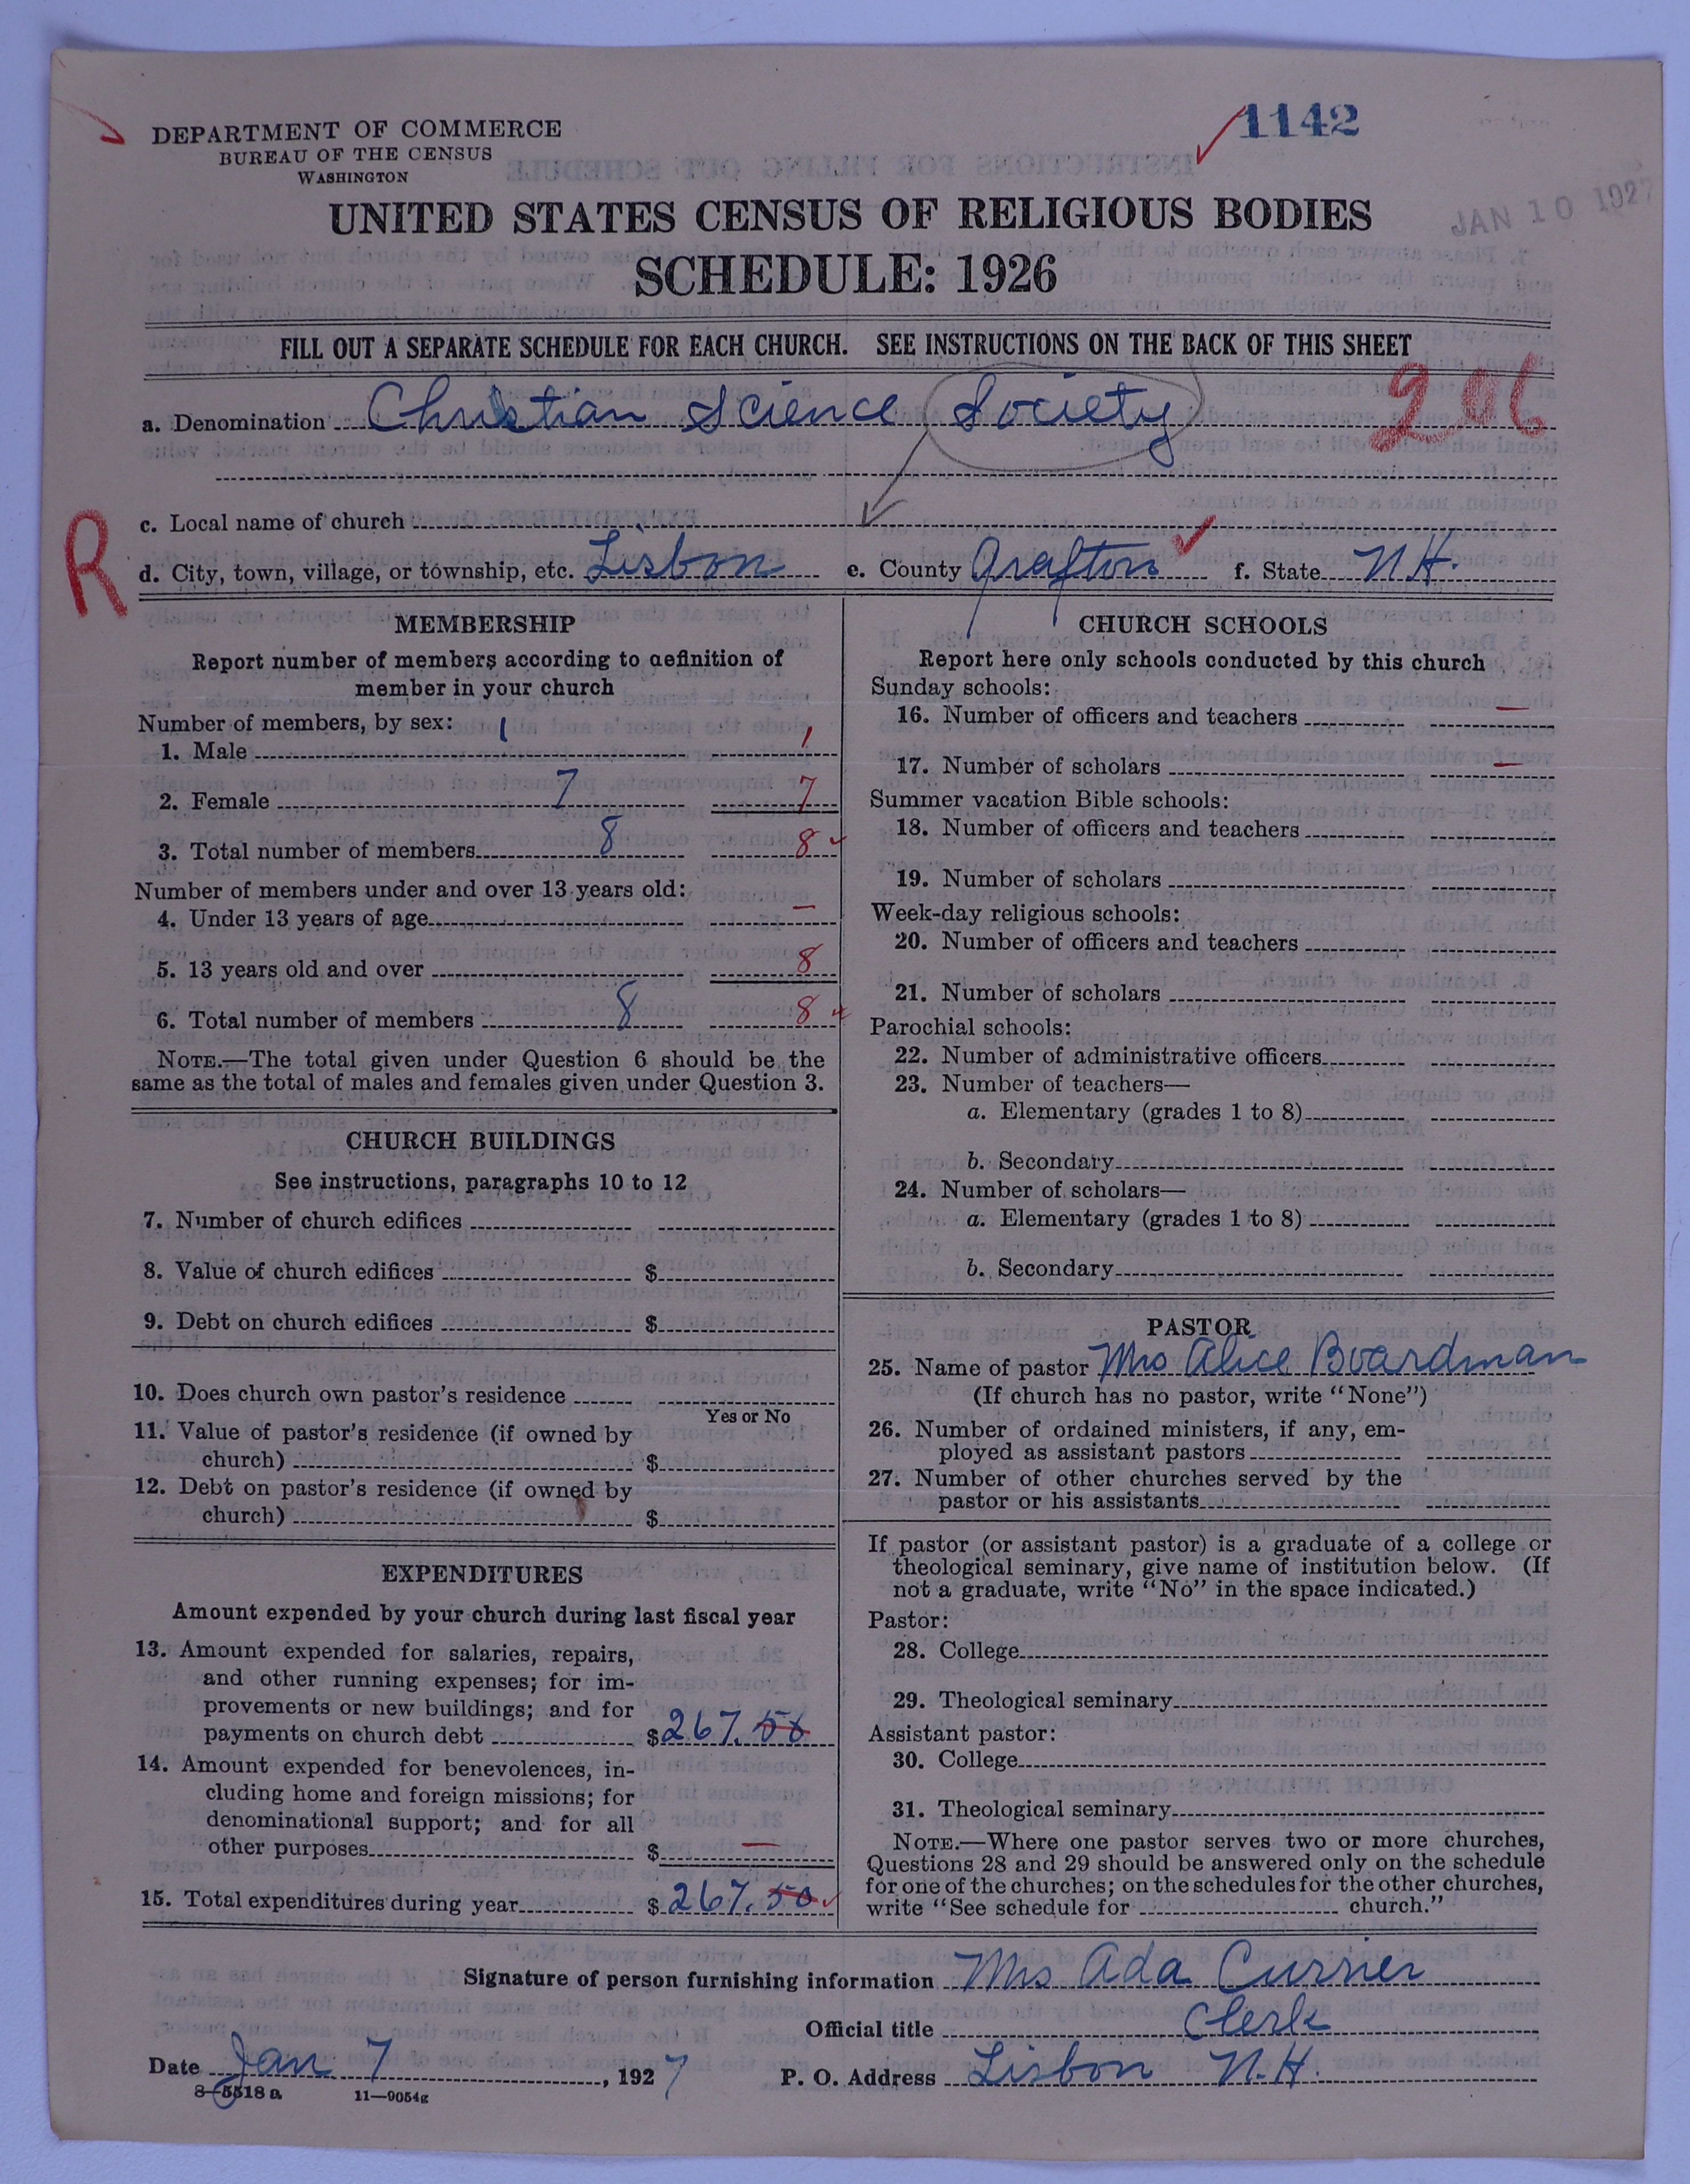 1142
DEPARTMENT OF COMMERCE
BUREAU OF THE CENSUS
WASHINGTON
JAN 10 1927
UNITED STATES CENSUS OF RELIGIOUS BODIES
SCHEDULE: 1926
FILL OUT A SEPARATE SCHEDULE FOR EACH CHURCH. SEE INSTRUCTIONS ON THE BACK OF THIS SHEET
206
a. Denomination Christian Science Society
c. Local name of church
R
d. City, town, village, or township, etc. Lisbon e. County Grafton f. State N.H.
MEMBERSHIP
Report number of members according to definition of
member in your church
Number of members, by sex:
1. Male 1 1
2. Female 7 7
3. Total number of members 8 8
Number of members under and over 13 years old:
4. Under 13 years of age —
5. 13 years old and over 8
6. Total number of members 8 8
NOTE.—The total given under Question 6 should be the
same as the total of males and females given under Question 3.
CHURCH BUILDINGS
See instructions, paragraphs 10 to 12
7. Number of church edifices
8. Value of church edifices $
9. Debt on church edifices $
10. Does church own pastor's residence
Yes or No
11. Value of pastor's residence (if owned by
church) $
12. Debt on pastor's residence (if owned by
church) $
EXPENDITURES
Amount expended by your church during last fiscal year
13. Amount expended for salaries, repairs,
and other running expenses; for im-
provements or new buildings; and for
payments on church debt $267.50
14. Amount expended for benevolences, in-
cluding home and foreign missions; for
denominational support; and for all
other purposes $ —
15. Total expenditures during year $267.50
CHURCH SCHOOLS
Report here only schools conducted by this church
Sunday schools:
16. Number of officers and teachers —
17. Number of scholars —
Summer vacation Bible schools:
18. Number of officers and teachers
19. Number of scholars
Week-day religious schools:
20. Number of officers and teachers
21. Number of scholars
Parochial schools:
22. Number of administrative officers
23. Number of teachers—
a. Elementary (grades 1 to 8)
b. Secondary
24. Number of scholars—
a. Elementary (grades 1 to 8)
b. Secondary
PASTOR
25. Name of pastor Mrs Alice Boardman
(If church has no pastor, write "None")
26. Number of ordained ministers, if any, em-
ployed as assistant pastors
27. Number of other churches served by the
pastor or his assistants
If pastor (or assistant pastor) is a graduate of a college or
theological seminary, give name of institution below. (If
not a graduate, write "No" in the space indicated.)
Pastor:
28. College
29. Theological seminary
Assistant pastor:
30. College
31. Theological seminary
NOTE.—Where one pastor serves two or more churches,
Questions 28 and 29 should be answered only on the schedule
for one of the churches; on the schedules for the other churches,
write "See schedule for church."
Signature of person furnishing information Mrs Ada Currier
Official title Clerk
Date Jan 7, 1927 P. O. Address Lisbon N.H.
8—5518 a 11—9054g